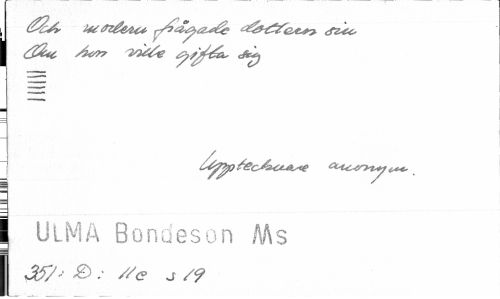 Och modern frågade dottern sin
Om hon ville gifta sig
Upptecknare anonym.
ULMA Bondeson Ms
351: D: 11c s 19